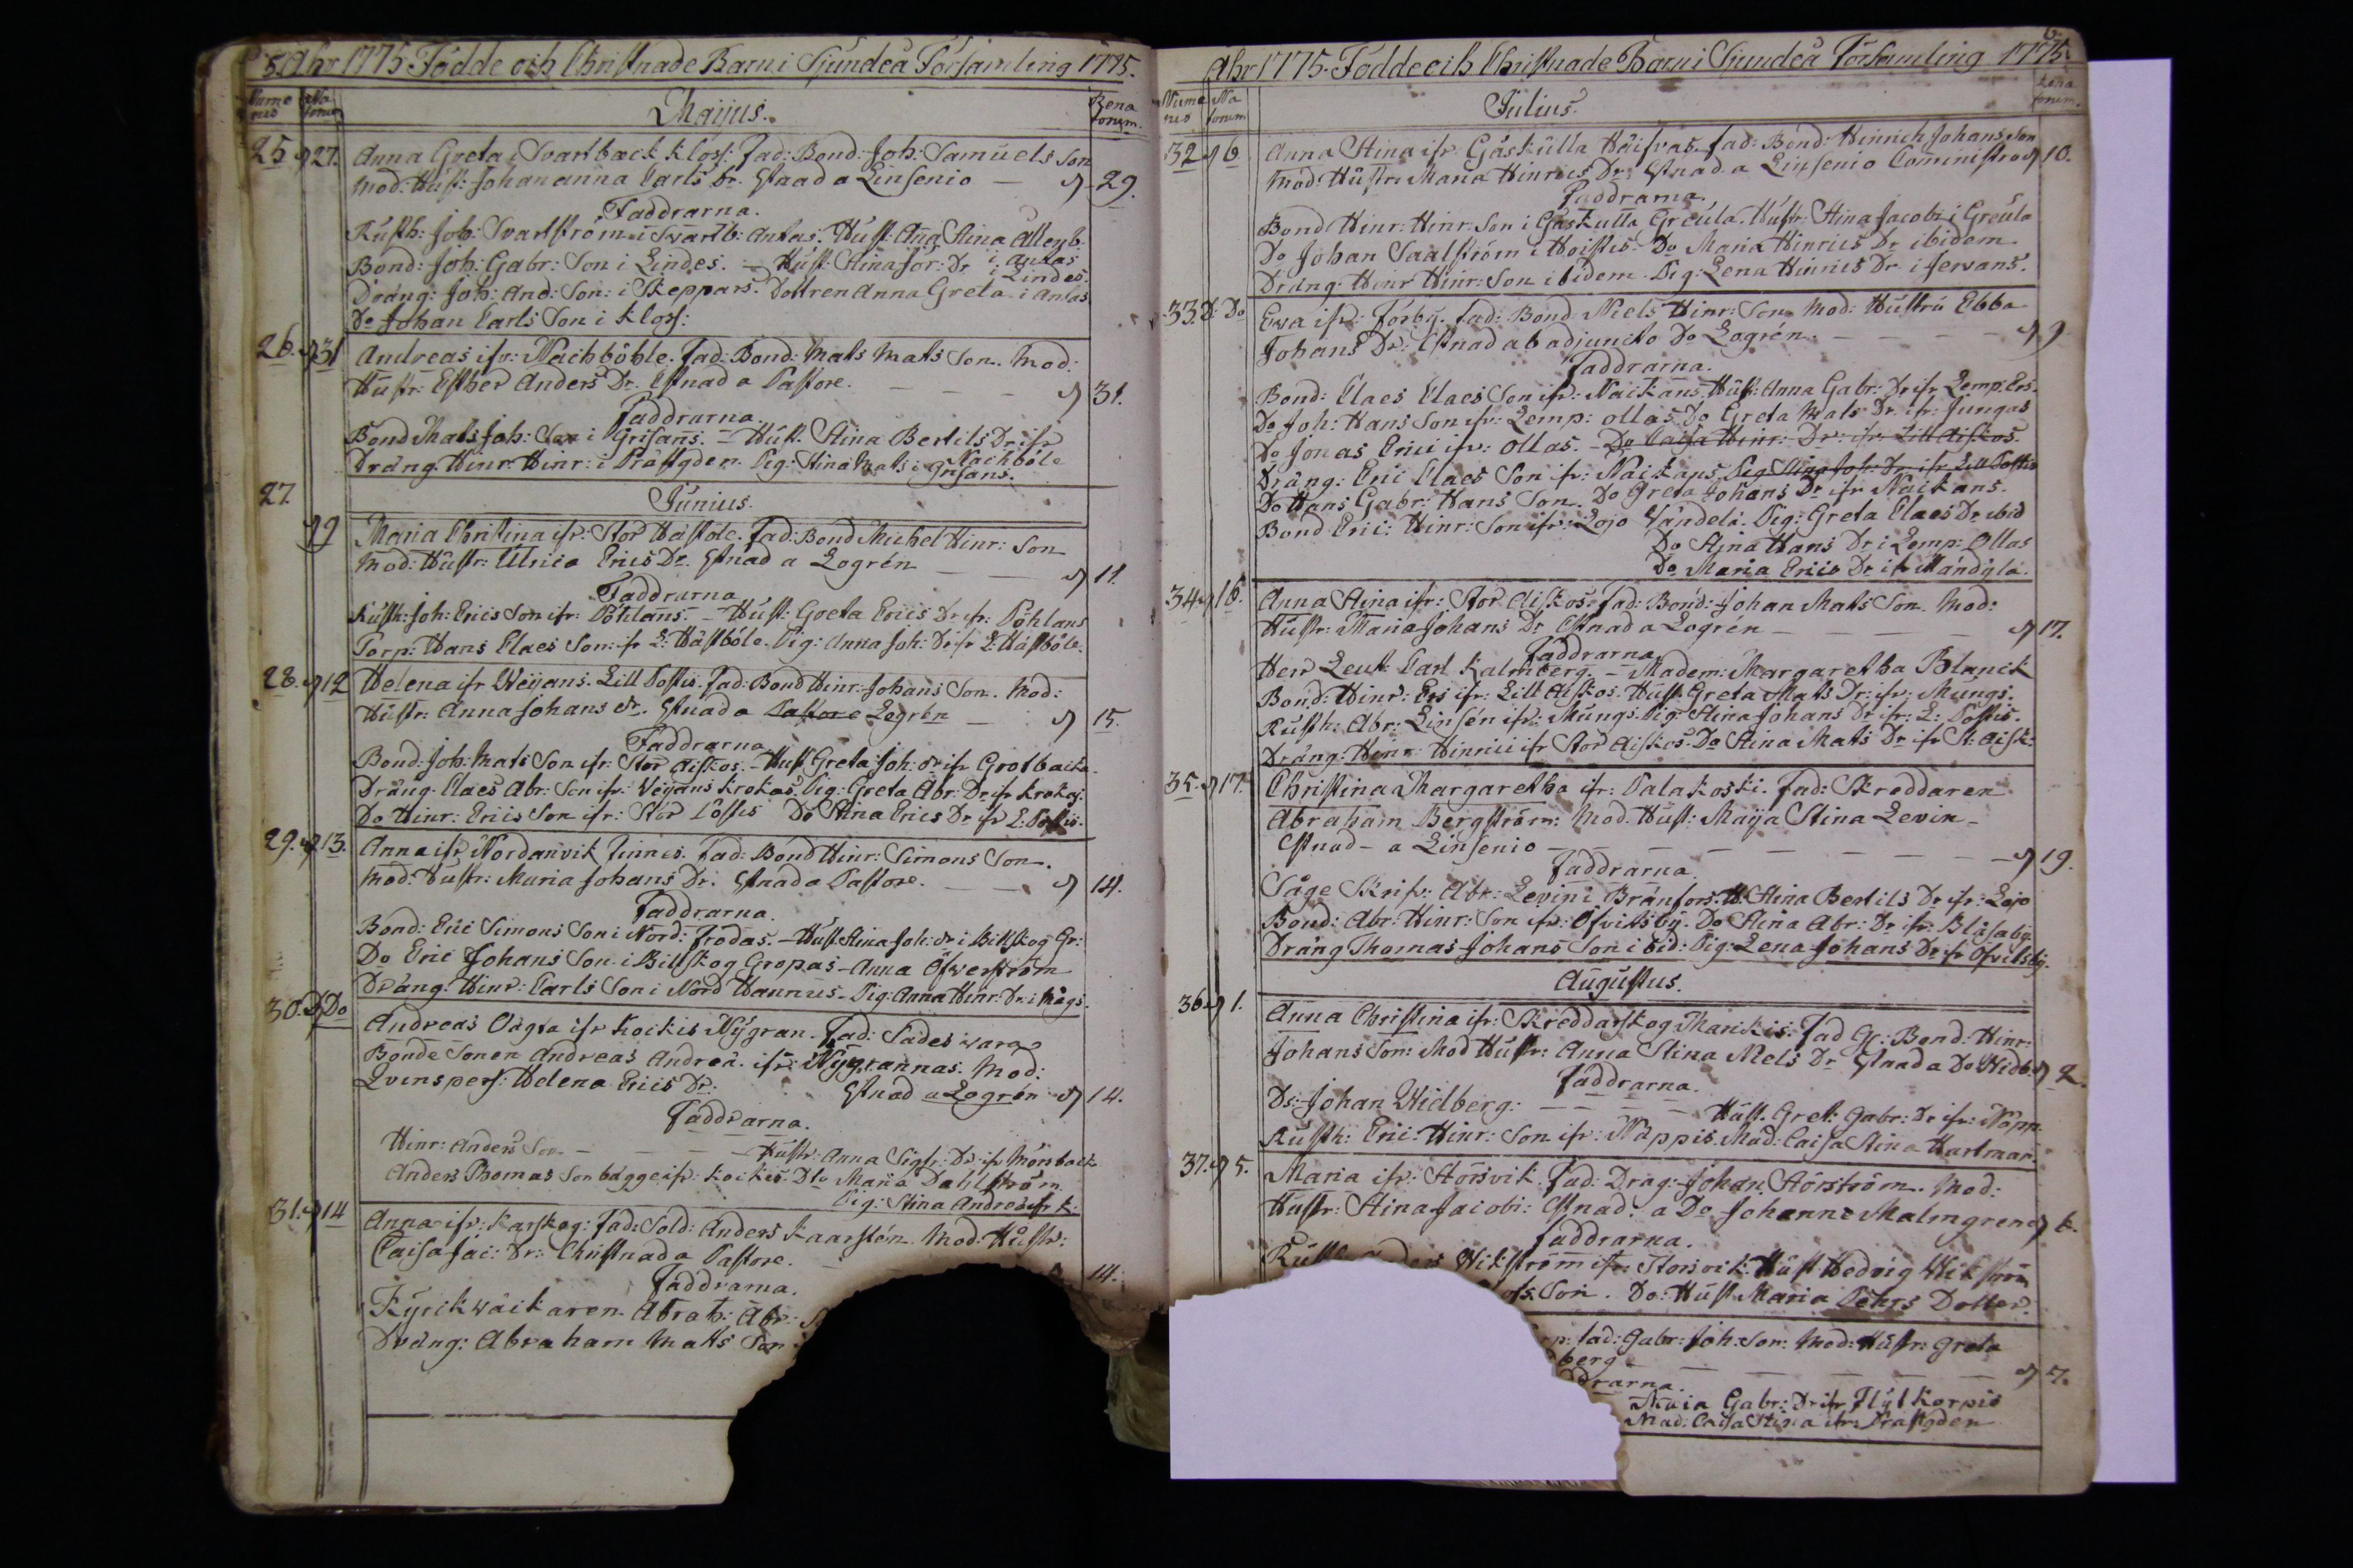 5. Ahr 1775 Födde och Christnade Barn i Sjundeå Församling 1775.
Nume nus Na torum Majus. Rena torum.
25 d 27. Anna Greta i Svartbæck Klos: Fad: Bond: Joh: Samuels Son
Mod: Hust: Johan anna Carls Dr. Chnad a Linsenio — d 29.
Faddrarna.
Rusth: Joh: Svartström i Svartb: Antas. Hust: Anna Stina
Bond: Joh: Gabr: Son i Lindes. — Hust: Stina Jor: Dr i Lindes
Dräng: Joh: And: Son: i Skeppars. Dottren Anna Greta i Antas
Do Johan Carls Son i Klos:
26. d 31 Andreas ifr: Nachböhle. Fad: Bond: Mats Mats Son. Mod:
Hustr: Esther Anders Dr. Chnad a Pastore. — — d 31.
Faddrarna.
Bond Mats Joh: Son i Grisans. — Hust. Stina Bertils Dr ifr Nachböle
Dräng. Hinr: Hinr: i Prästgden. Pig: Stina Mats i Grisans.
27. Junius.
d 9 Maria Christina ifr: Stor Hästöle. Fad: Bond Michel Hinr: Son
Mod: Hustr: Ulrica Erics Dr. Chnad a Logrén — — d 11.
Faddrarna
Rusth: Joh: Erics Son ifr: Pohlans. — Hust: Greta Erics Dr ifr: Pohlans
Torp: Hans Claes Son: ifr L: Hästböle. Pig: Anna Joh: Dr ifr L: Hästböle.
28. d 12 Helena ifr Weijans. Lill Postis. Fad: Bond Hinr: Johans Son. Mod:
Hustr: Anna Johans Dr. Chnad a Pastore Logrén — d 15.
Faddrarna
Bond: Joh: Mats Son ifr: Stor Aiskos. — Hust Greta Joh: Dr ifr Grotbacka
Dräng. Claes Abr: Son ifr: Weijans Krokas. Pig: Greta Abr: Dr ifr Krokas.
Do Hinr: Erics Son ifr: Stor Postis Do Stina Erics Dr ifr L: Postis.
29. d 13. Anna ifr Nordanvik Finnes. Fad: Bond Hinr: Simons Son.
Mod: Hustr: Maria Johans Dr. Chnad a Pastore. — — d 14.
Faddrarna.
Bond: Eric Simons Son i Nord: Frodas. — Hust Stina Joh: Dr i Billskog Gr:
Do Eric Johans Son i Billskog Gropas — Anna Öfverström
Dräng: Hinr: Carls Son i Nord Hannus. Pig: Anna Hinr: Dr i Mågs.
30. D Do Andreas Oägta ifr Kockis Nygran. Fad: Sades wara
Bonde Sonen Andreas Andreæ. ifr: Nygrannas. Mod:
Qvinspers: Helena Erics Dr. Chnad a Logrén d 14.
Faddrarna.
Hinr: Anders Son — — — Hustr: Anna Sigfr: Dr ifr Mörsback
Anders Thomas Son bagge ifr: Kockis. Dlo Maria Dahlström
Pig: Stina Andreæ ifr K:
31. d 14 Anna ifr: Karskog: Fad: Sold: Anders Kaarstén. Mod: Hustr:
Caisa Jac: Dr: Christnad a Pastore. — 14.
Faddrarna.
Kyrckwäcktaren Abrah: Abr:
Dräng: Abraham Matts Son
6.
Ahr 1775. Födde och Christnade Barn i Sjundeå Församling 1775.
Nume nus Na torum Julius. Rena torum.
32 d 6 Anna Stina ifr Gåskulla Fad: Bond: Hinrich Johans Son
Mod: Hustr: Maria Hinrics Dr. Chnad. a Linsenio Comministro d 10.
Faddrarna.
Bond Hinr: Hinr: Son i Gåskulla Greula. Hustr: Stina Jacobs i Greula
Do Johan Saalström i Hoistis. Do Maria Hinrics Dr ibidem
Dräng: Hinr Hinr: Son ibidem. Pig: Lena Hinrics Dr. i Jervans.
33. D: Do Ewa ifr: Förby. Fad: Bond Niels Hinr: Son Mod: Hustru Ebba
Johans Dr. Chnad ab adjuncto Do Logrén. — — — d 9
Faddrarna.
Bond: Claes Claes Son ifr: Naikans. Hust: Anna Gabr: Dr ifr Lemp: Ers.
Do Joh: Hans Son ifr: Lemp: ollas Do Greta Mats Dr. ifr: Jungas
Do Jonas Erici ifr: ollas. — Do Caisa Hinr: Dr: ifr Lill Aiskos.
Dräng: Eric Claes Son ifr: Naikans Pig Stina Joh: Dr ifr Lill Postis
Do Hans Gabr: Hans Son. Do Greta Johans Dr ifr Naikans.
Bond Eric: Hinr: Son ifr: Lojo Vandelä. Pig: Greta Claes Dr ibid
Do Stina Hans Dr i Lemp: Ollas
Do Maria Erics Dr ifr Vandela.
34 d 16. Anna Stina ifr: Stor Aiskos. Fad: Bond: Johan Mats Son. Mod:
Hustr: Maria Johans Dr Chnad a Logrén — — — d 17.
Faddrarna.
Herr Leut: Carl Kalmberg. — Madem: Margaretha Blanck
Bond: Hinr: Ers ifr: Lill Aiskos. Hust. Greta Mats Dr: ifr: Mungs.
Rusth: Abr: Linsén ifr: Mungs. Pig: Stina Johans Dr ifr: L: Postis.
Dräng: Hinr: Hinrici ifr Stor Aiskos. Do Stina Mats Dr ifr St: Aisk:
35. d 17. Christina Margaretha ifr: Palakoski. Fad: Skreddaren
Abraham Bergström: Mod. Hust: Maija Stina Levin —
Chnad — a Linsenio — — — — — — d 19.
Faddrarna.
Såge Skrifv: Abr: Levin i Bränfors. H: Stina Bertils Dr ifr: Lojo
Bond: Abr: Hinr: Son ifr: Öfvitsby. Do Stina Abr: Dr ifr: Blåsaby.
Dräng Thomas Johans Son ibid: Pig: Lena Johans Dr ifr Öfvitsby.
Augustus.
36 d 1. Anna Christina ifr: Skreddarskog Marikis: Fad Gl: Bond: Hinr:
Johans Son: Mod Hustr: Anna Stina Niels Dr. Chnad a Do Widb. d 2.
Faddrarna.
Ds: Johan Widberg: — — — — Hust. Gret: Gabr: Dr ifr: Näpp
Rusth: Eric: Hinr: Son ifr: Näppis. Mad: Caisa Stina Hartman.
37. d 5. Maria ifr: Störsvik. Fad: Dräg: Johan Störström. Mod:
Hustr: Stina Jacobi: Chnad: a Do Johanne Malmgren d 6.
Faddrarna.
Wikström ifr: Störsvik: Hust Hedvig Wikström
Son. Do: Hust Maria Pehrs Dotter.
Fad: Gabr: Joh: Son: Mod: Hustr: Greta
berg — — — — — — d 7.
drarna.
Maia Gabr: Dr ifr Flytkorpis
Mad: Caisa Stina ifr: Prästgden